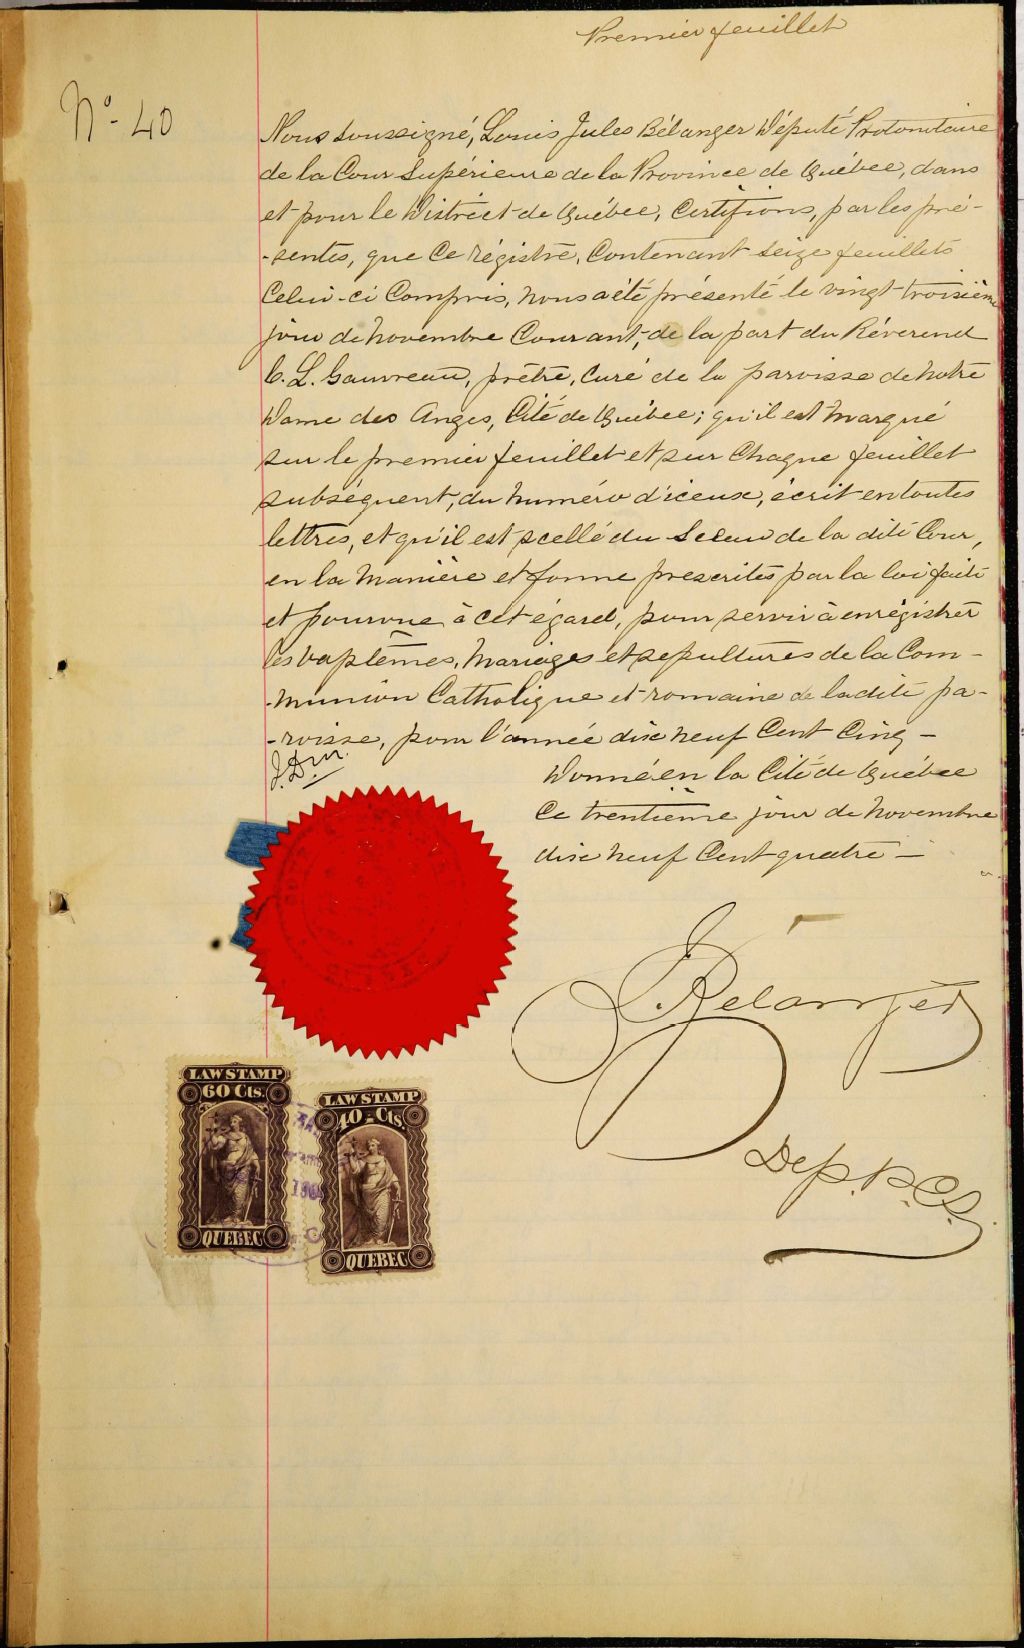 Premier feuillet
No. 40
Nous soussigné, Louis Jules Bélanger Député Protonotaire
de la Cour Supérieure de la Province de Québec, dans
et pour le District de Québec, Certifions, par les pré-
-sentes, que ce régistre, contenant seize feuillets
celui-ci compris, nous a été présenté le vingt-troisième
jour de novembre courant, de la part du Révérend
C. L. Gauvreau, prêtre, curé de la paroisse de Notre
Dame des Anges, Cité de Québec; qu'il est marqué
sur le premier feuillet et sur chaque feuillet
subséquent, du numéro d'iceux, écrit en toutes
lettres, et qu'il est scellé du sceau de la dite Cour,
en la manière et forme prescrites par la loi faite
et pourvue à cet égard, pour servir à enrégistrer
les baptêmes, mariages et sepultures de la Com-
-munion Catholique et romaine de la dite pa-
-roisse, pour l'année dix neuf cent cinq –
J.D.M.
Donné en la Cité de Québec
ce trentième jour de novembre
dix neuf cent quatre –
J. Bélanger
Dép. P.C.S.
LAW STAMP
60 Cts.
QUEBEC
LAW STAMP
40 Cts.
QUEBEC